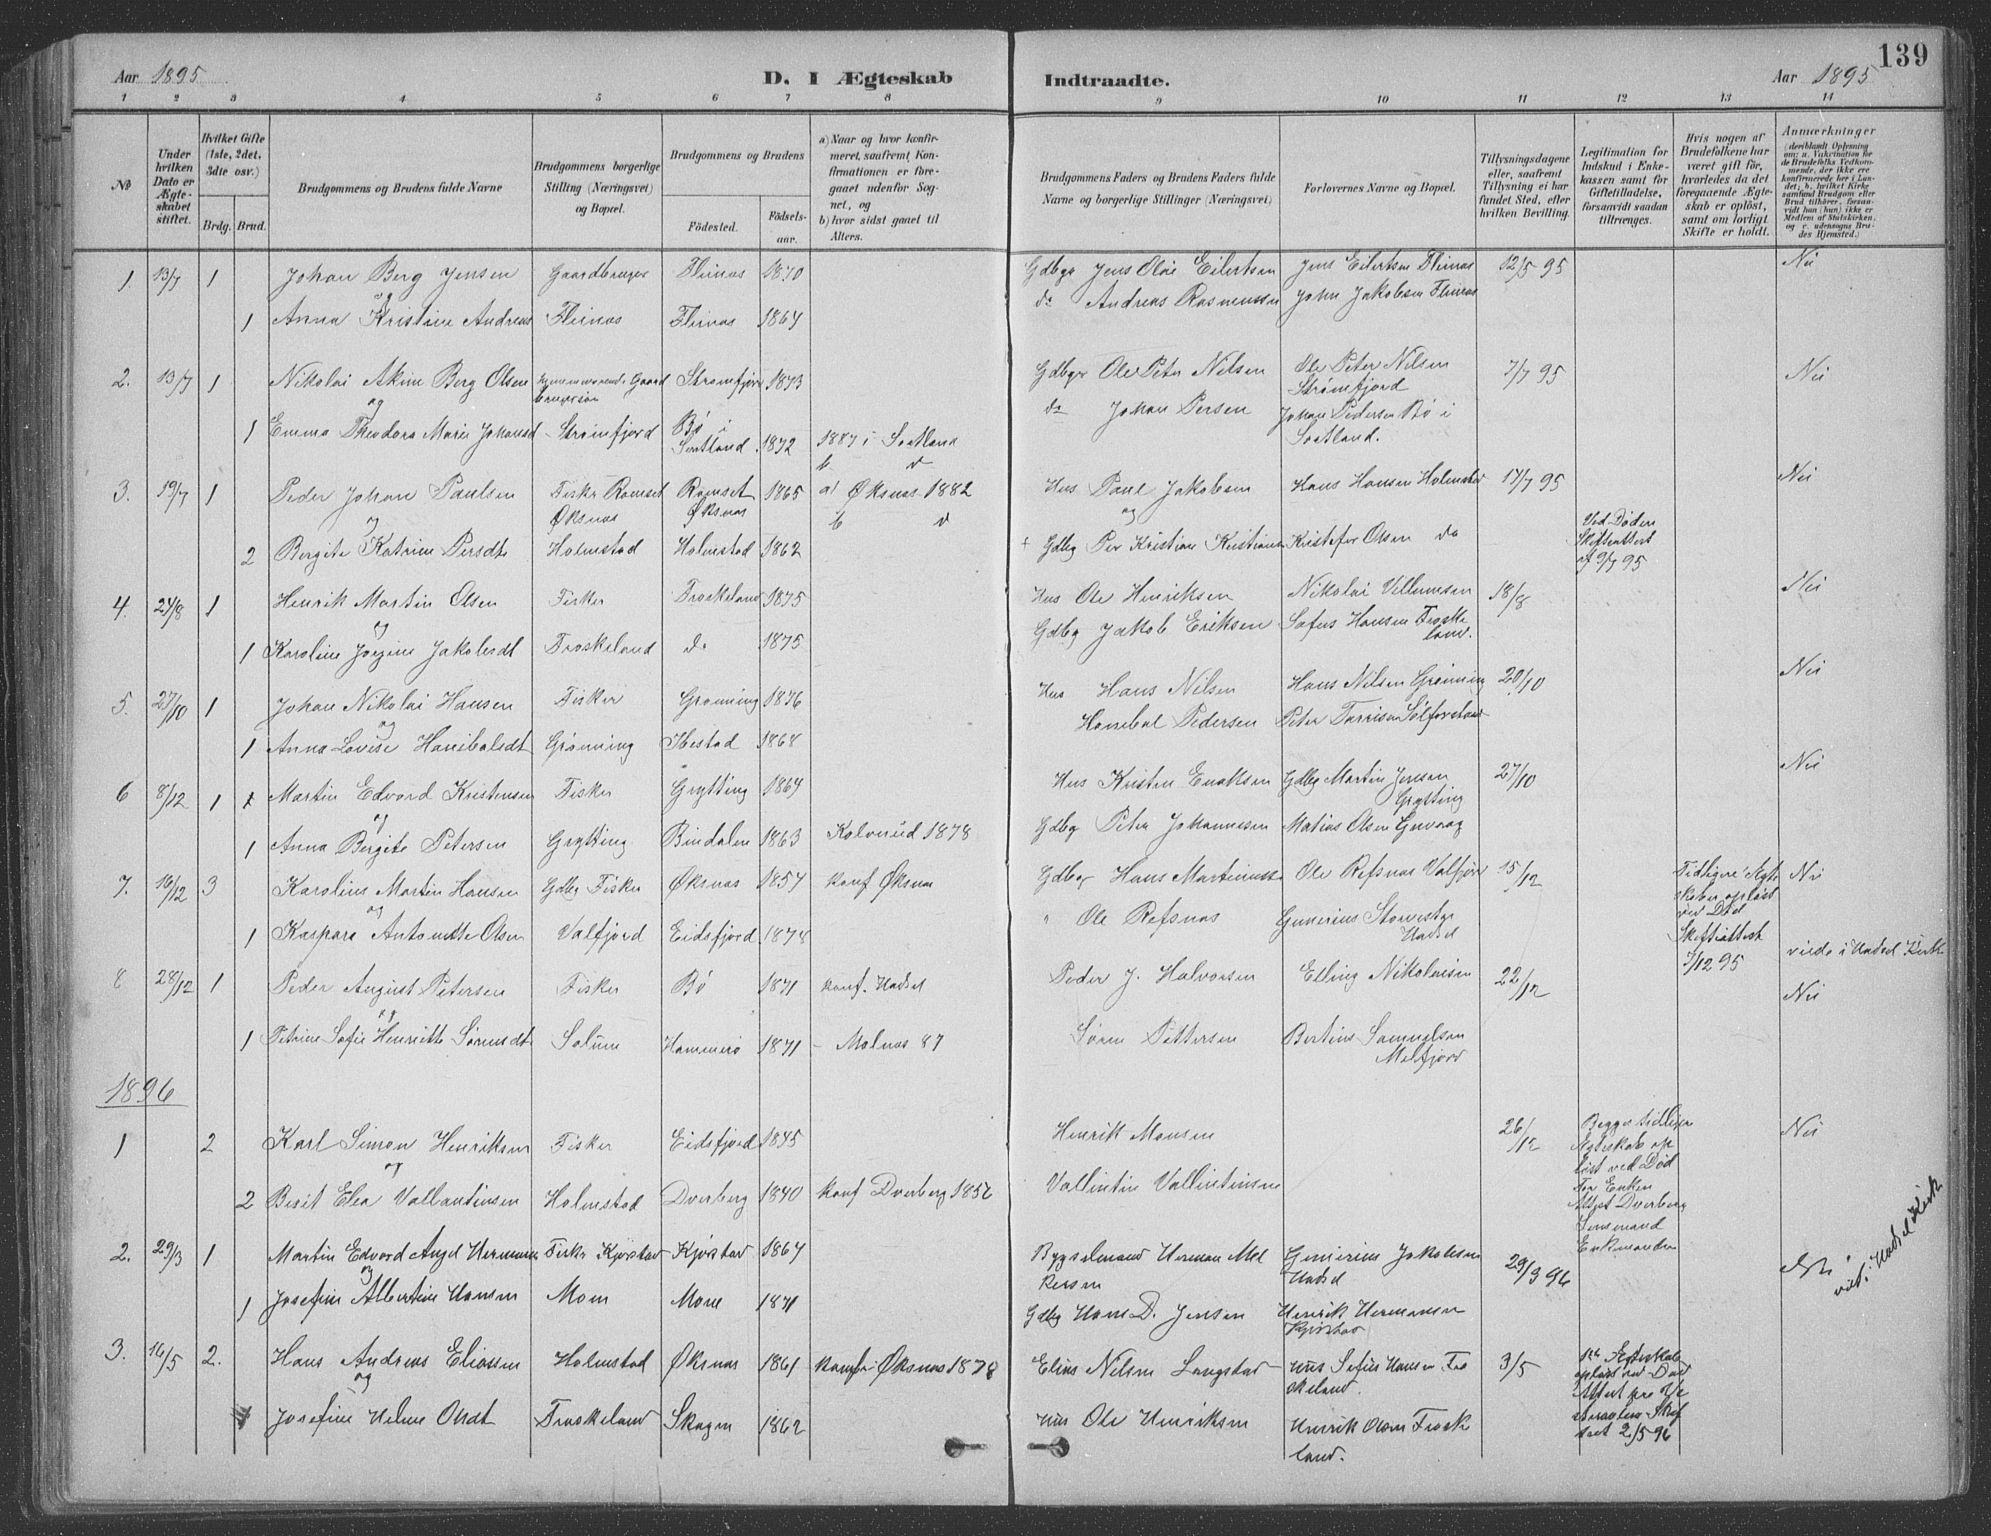 139
Aar 1895
D. I Ægteskab Indtraadte.
Aar 1895
1 2 3 4 5 6 7 8 9 10 11 12 13 14
No
Under hvilken Dato er Ægteskabet stiftet.
Hvilket Gifte (1ste, 2det, 3dte osv.)
Brdg. Brud.
Brudgommens og Brudens fulde Navne
Brudgommens borgerlige Stilling (Næringsvei) og Bopæl.
Brudgommens og Brudens
Fødested.
Fødselsaar.
a) Naar og hvor konfirmeret, saafremt Konfirmationen er foregaaet udenfor Sognet, og
b) hvor sidst gaaet til Alters.
Brudgommens Faders og Brudens Faders fulde Navne og borgerlige Stillinger (Næringsvei)
Forlovernes Navne og Bopæl.
Tillysningsdagene eller, saafremt Tillysning ei har fundet Sted, efter hvilken Bevilling.
Legitimation for Indskud i Enkekassen samt for Giftetilladelse, forsaavidt saadan tiltrænges.
Hvis nogen af Brudefolkene har været gift før, hvorledes da det foregaaende Ægteskab er opløst, samt om lovligt Skifte er holdt.
Anmærkninger (deriblandt Oplysning om: a. Vakcination for de Brudefolks Vedkommende, der ikke ere konfirmerede her i Landet; b. hvilket Kirkesamfund Brudgom eller Brud tilhører, forsaavidt han (hun) ikke er Medlem af Statskirken, og c. udensogns Brudes Hjemsted.)
1 13/7 1 Johan Berg Jensen Gaardbruger Flinas 1870 Gdbgr Jens Olai Eilertsen Jens Eilertsen Flinas 12/5 95 Nei
og
1 Anna Kristine Andreas Flinas Flinas 1864 do Andreas Rasmussen John Jakobsen Flinas
2. 13/7 1 Nikolai Akim Berg Olsen Hjemmeværende Gaardbrugersøn Strømfjord 1873 Gdbgr Ole Peter Nilsen Ole Peter Nilsen Strømfjord 7/7 95 Nei
og
1 Emma Theodora Marie Johansd Strømfjord Bø i Sortland 1872 1887 i Sortland do Johan Persen Johan Pedersen Bø i Sortland.
3. 19/7 1 Peder Johan Paulsen Fisker Romset Øksnas Romset Øksnas 1865 a) Øksnas 1882 Hus Paul Jakobsen Hans Hansen Holmstad 17/7 95 Nei
og
2 Bergite Katrine Persdt Holmstad Holmstad 1862 Gdbg Per Kristian Kristians Kristofer Olsen do Ved Døden Skifteattest af 9/7 95
4. 24/8 1 Henrik Martin Olsen Fisker Froskeland 1875 Hus Ole Henriksen Nikolai Villumsen 18/8 Nei
og
1 Karoline Jorgine Jakobsdt Froskeland do 1875 Gdbg Jakob Eriksen Sofus Hansen Froskeland.
5. 27/10 1 Johan Nikolai Hansen Fisker Grønning 1876 Hus Hans Nilsen Hans Nilsen Grønning 20/10 Nei
og
1 Anna Lovise Hanibalsdt Grønning Ibestad 1868 Hanebal Pedersen Peter
6 8/12 1 1 Martin Edvard Kristensen Fisker Grytting 1864 Hus Kristen Enoksen Gdbg Martin Jensen Grytting 27/10 Nei
og
1 Anna Bergite Petersen Grytting Bindalen 1863 Kolvereid 1878 Gdbg Peter Johannesen Matias Olsen Guvaag
7. 16/12 3 Karolius Martin Hansen Gdbr Fisker Øksnas 1857 konf Øksnas Gdbgr Hans Martinussen Ole Refsnas Valfjord 15/12 Tidligere Ægteskaber opløst ved Død Skifteattest 7/12 95 Nei
og
1 Kaspara Antonette Olsen Valfjord Eidsfjord 1874 " Ole Refsnas Gunerius Storvestge Hadsel viede i Hadsel Kirke
8 28/12 1 Peder August Petersen Fisker Bø 1871 konf. Hadsel Peder J. Halvorsen Elling Nikolaisen 22/12 Nei
og
1 Petrine Sofie Henriette Sørensdt Solum Hammerø 1871 Malnas 87 Søren Pettersen Bertius Samuelsen Melfjord
1896
1 2 Karl Simon Henriksen Fisker Eidsfjord 1845 Henrik Monsen 26/12 Begges tidligere Ægteskab opløst ved Død Nei
og
2 Berit Elea Vallantinsen Holmstad Dverberg 1840 konf Dverberg 1856 Vallintin Vallintinsen For Enken Attest Dverberg Lensmand Enkemanden
2. 29/3 1 Martin Edvard Angel Hermansen Fisker Kjørstad Kjørstad 1864 Bygselmand Herman Mekkersen Gunerius Jakobsen Hadsel 29/3 96 Nei
og
1 Josefine Albertine Hansen Moen Moen 1871 Gdbg Hans D. Jensen Henrik Hermansen Kjørstad viet i Hadsel Kirk
3. 16/5 2. Hans Andreas Eliassen Holmstad Øksnas 1861 konf. Øksnas 1878 Elias Nilsen Langstad Hus Sofus Hansen Froskeland. 3/5 1ste Ægteskab opløst ved Død
og
Josefine Helene Olsdt Froskeland Skogen 1862 Hus Ole Henriksen Henrik Olsen Froskeland. 2/5 96